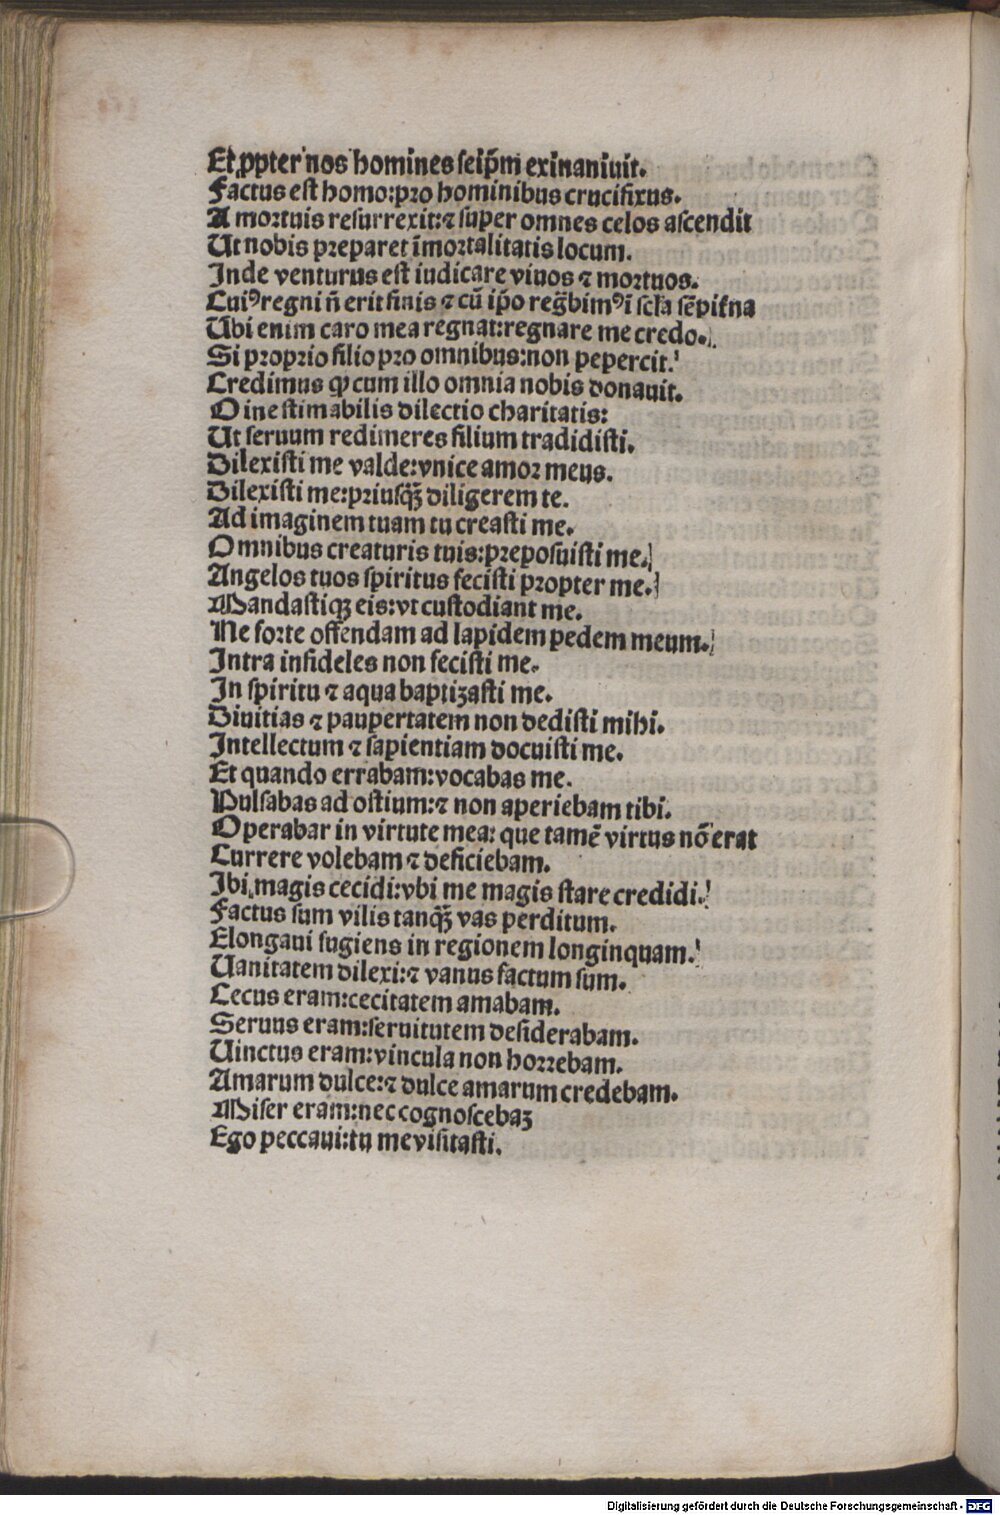 Et ꝓpter nos homines seip̄m exinaniuit.
Factus est homo:pro hominibus crucifixus.
A mortuis resurrexit:⁊ super omnes celos ascendit
Ut nobis preparet īmortalitatis locum.
Inde venturus est iudicare viuos ⁊ mortuos.
Cuiꝰ regni ñ erit finis ⁊ cū ip̄o reg̃bimꝰ ī sc̄la sēpit̄na
Ubi enim caro mea regnat:regnare me credo.
Si proprio filio pro omnibus:non pepercit.
Credimus ꝙ cum illo omnia nobis donauit.
O inestimabilis dilectio charitatis:
Ut seruum redimeres filium tradidisti.
Dilexisti me valde:vnice amor meus.
Dilexisti me:priusq̃ꝫ diligerem te.
Ad imaginem tuam tu creasti me.
Omnibus creaturis tuis:preposuisti me.
Angelos tuos spiritus fecisti propter me.
Mandastiqꝫ eis:vt custodiant me.
Ne forte offendam ad lapidem pedem meum.
Intra infideles non fecisti me.
In spiritu ⁊ aqua baptizasti me.
Diuitias ⁊ paupertatem non dedisti mihi.
Intellectum ⁊ sapientiam docuisti me.
Et quando errabam:vocabas me.
Pulsabas ad ostium:⁊ non aperiebam tibi.
Operabar in virtute mea: que tamē virtus nō erat
Currere volebam ⁊ deficiebam.
Ibi magis cecidi:vbi me magis stare credidi.
Factus sum vilis tanq̃ꝫ vas perditum.
Elongaui fugiens in regionem longinquam.
Uanitatem dilexi:⁊ vanus factum sum.
Cecus eram:cecitatem amabam.
Seruus eram:seruitutem desiderabam.
Uinctus eram:vincula non horrebam.
Amarum dulce:⁊ dulce amarum credebam.
Miser eram:nec cognoscebaꝫ
Ego peccaui:tu me visitasti.
Digitalisierung gefördert durch die Deutsche Forschungsgemeinschaft - DFG